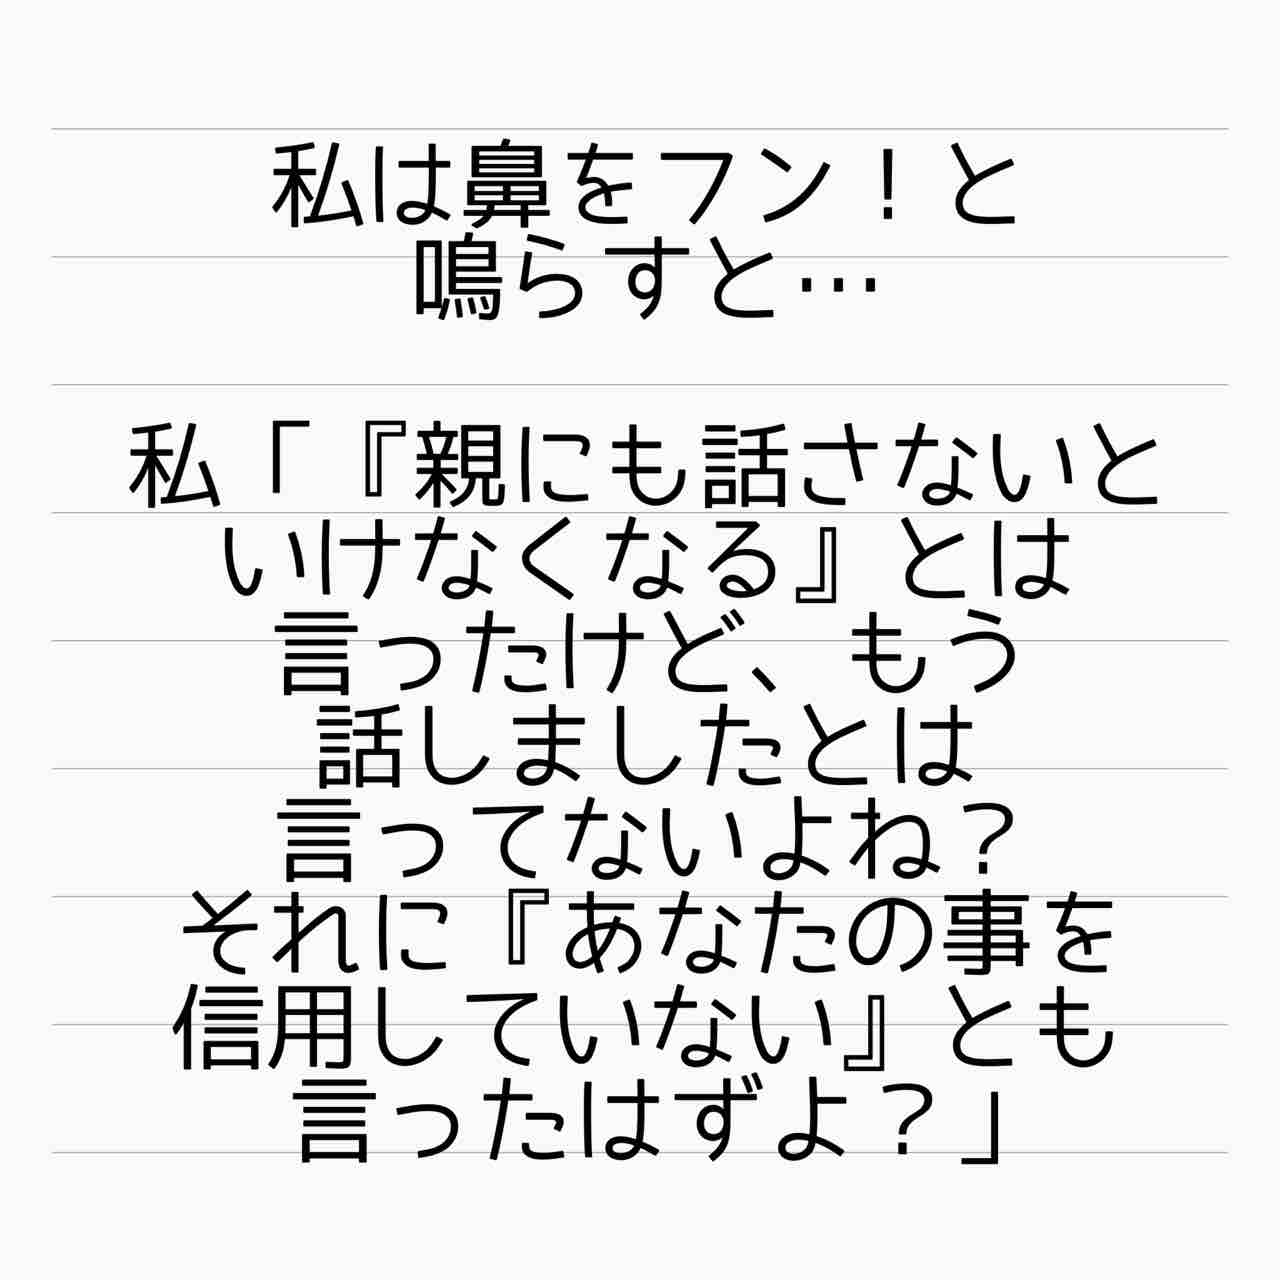 私は鼻をフン！と
鳴らすと…
私「『親にも話さないと
いけなくなる』とは
言ったけど、もう
話しましたとは
言ってないよね？
それに『あなたの事を
信用していない』とも
言ったはずよ？」